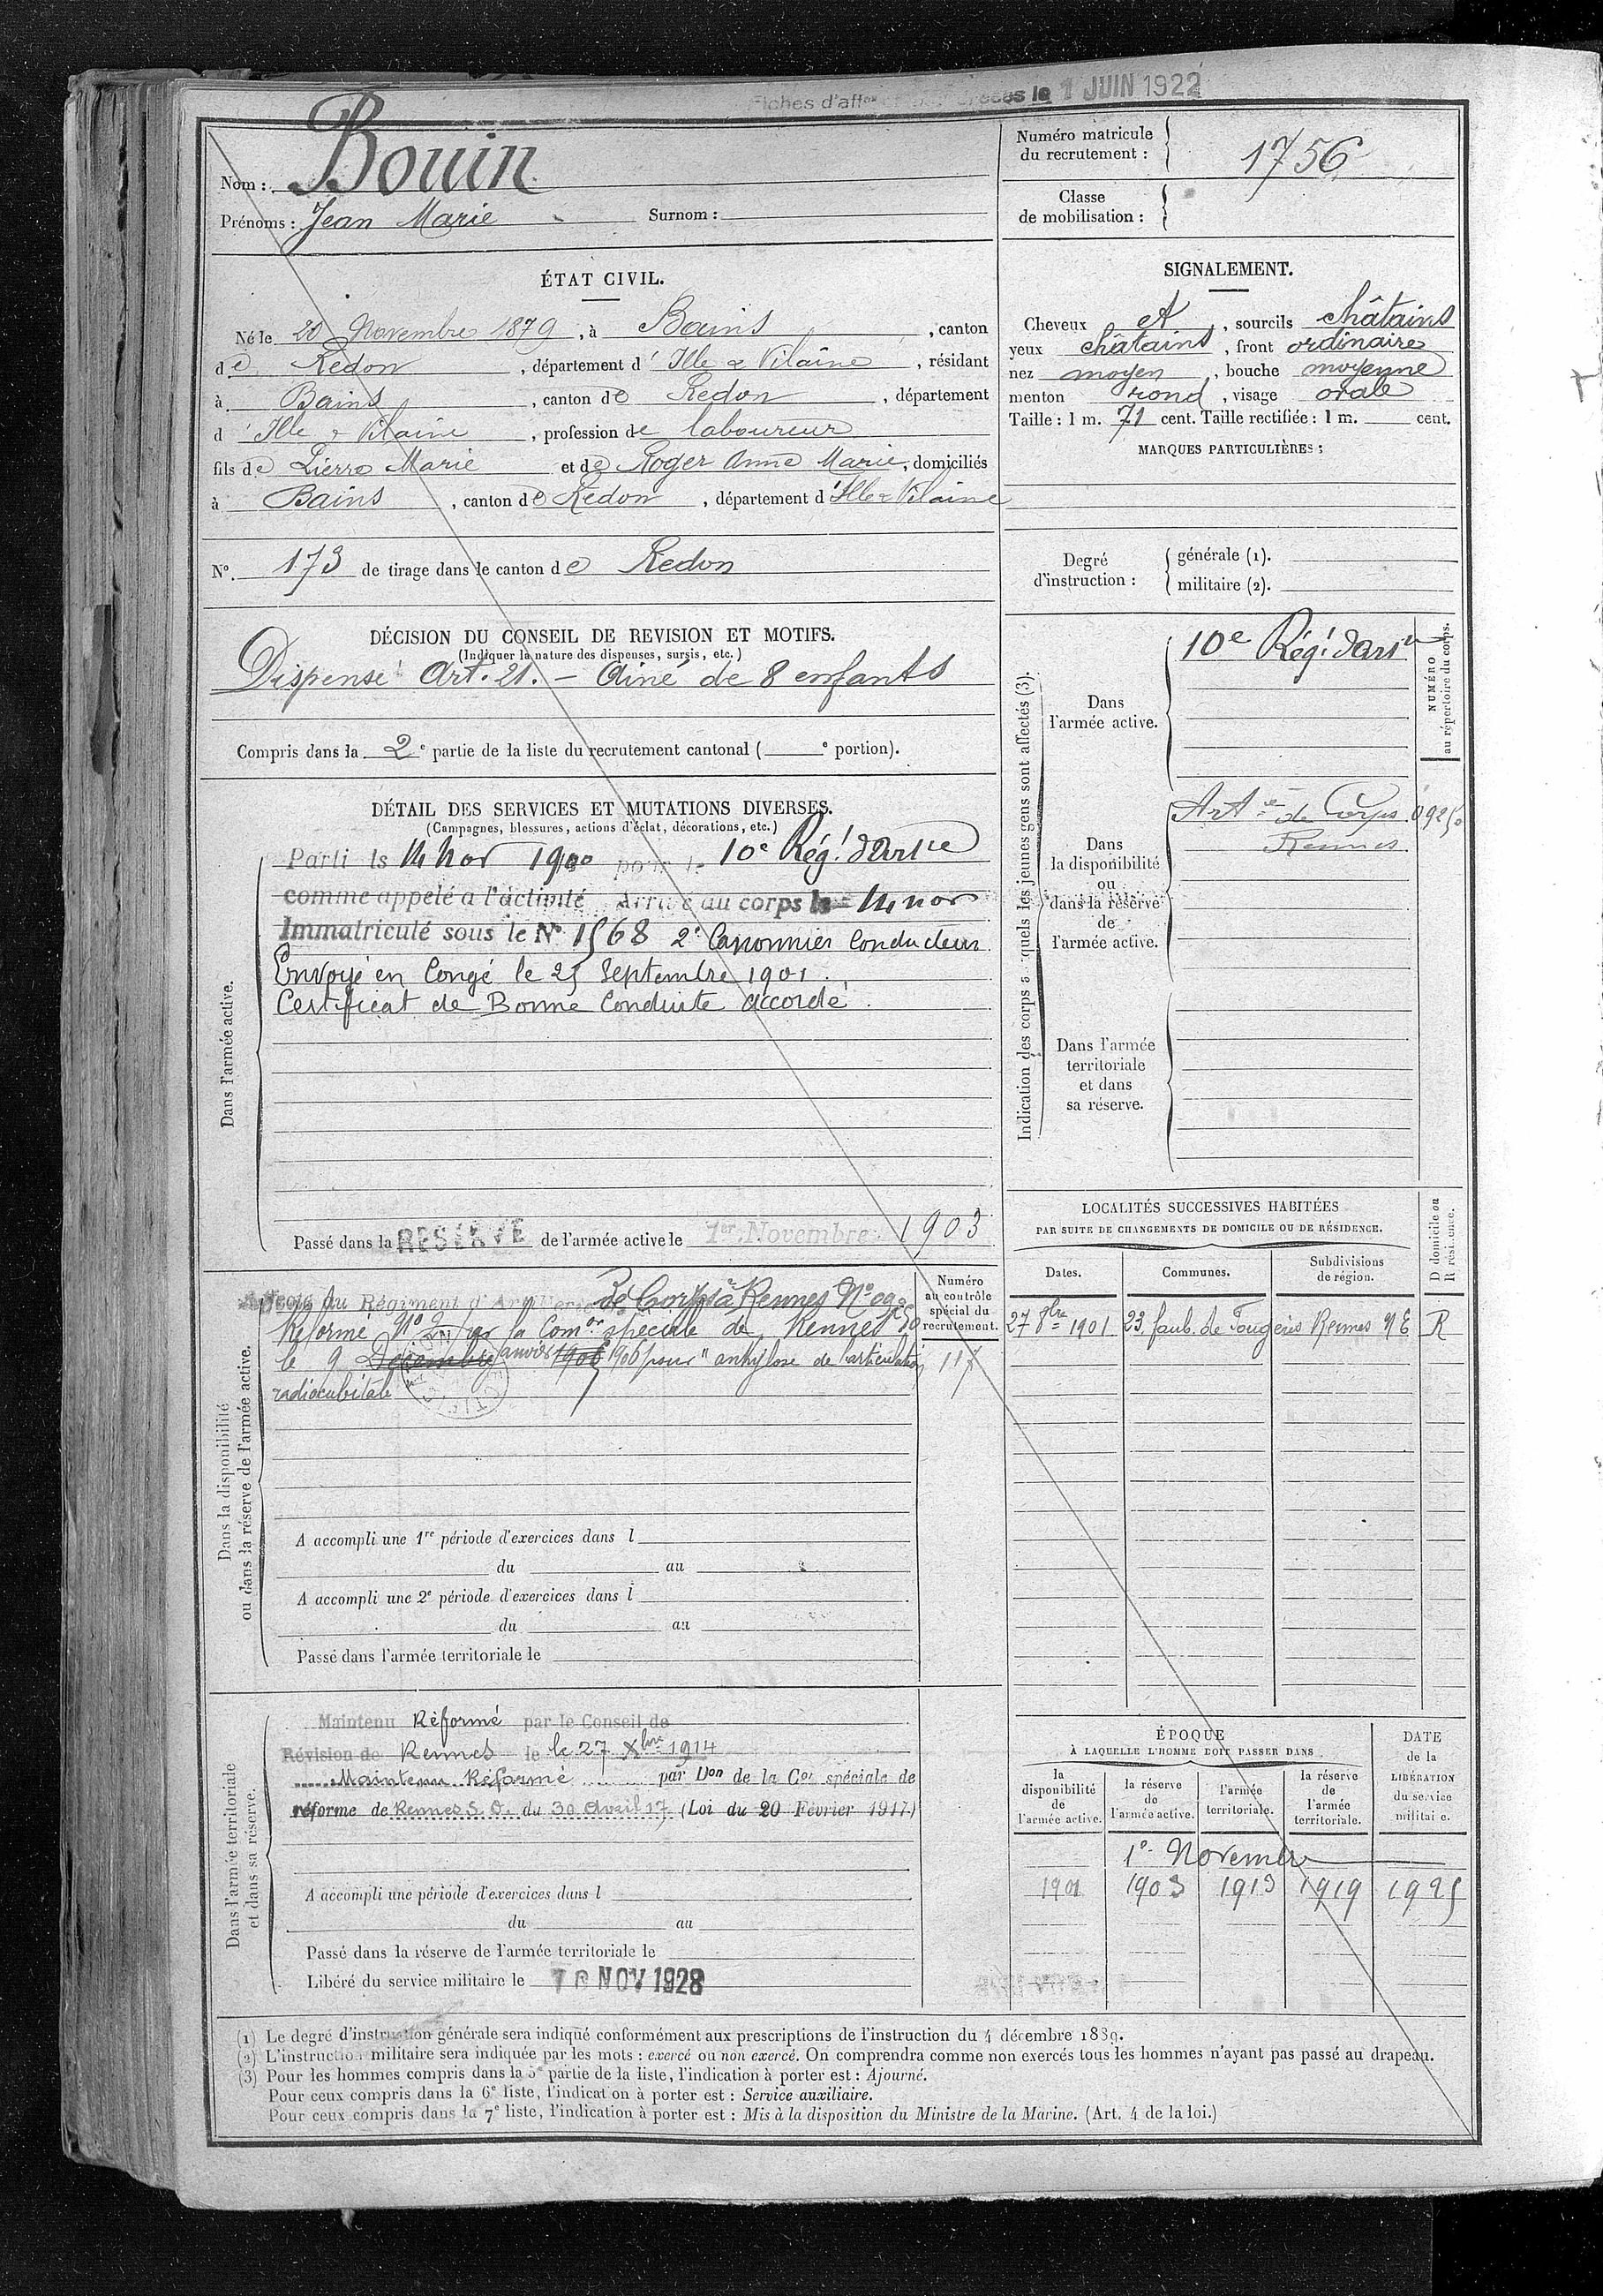 Fiches d'aff 1 JUIN 1922
Nom : Bouin
Prénoms : Jean Marie Surnom :
Numéro matricule du recrutement : 1756
Classe de mobilisation :
ÉTAT CIVIL.
Né le 20 Novembre 1879, à Bains, canton
de Redon, département d'Ille & Vilaine, résidant
à Bains, canton de Redon, département
d'Ille & Vilaine, profession de laboureur
fils de Pierre Marie et de Roger Anne Marie, domiciliés
à Bains, canton de Redon, département d'Ille & Vilaine
N°. 173 de tirage dans le canton de Redon
SIGNALEMENT.
Cheveux et, sourcils châtains
yeux châtains, front ordinaire
nez moyen, bouche moyenne
menton rond, visage ovale
Taille : 1 m. 71 cent. Taille rectifiée : 1 m. cent.
MARQUES PARTICULIÈRES :
Degré d'instruction :
générale (1).
militaire (2).
DÉCISION DU CONSEIL DE REVISION ET MOTIFS.
(Indiquer la nature des dispenses, sursis, etc.)
Dispensé Art. 21. - Ainé de 8 enfants
Compris dans la 2e partie de la liste du recrutement cantonal ( e portion).
DÉTAIL DES SERVICES ET MUTATIONS DIVERSES.
(Campagnes, blessures, actions d'éclat, décorations, etc.)
Dans l'armée active.
Parti le 14 nov 1900 pour le 10e Rég.t d'Artie
comme appelé a l'activité Arrivé au corps le 14 nov
Immatriculé sous le N° 1568 2e Canonnier Conducteur
Envoyé en Congé le 25 Septembre 1901.
Certificat de Bonne Conduite accordé.
Passé dans la RÉSERVE de l'armée active le 1er Novembre 1903
Indication des corps auxquels les jeunes gens sont affectés (3).
NUMÉRO au répertoire du corps.
Dans l'armée active.
10e Rég.t d'Artie
Dans la disponibilité ou dans la réserve de l'armée active.
Artie de Corps
Rennes
Dans l'armée territoriale et dans sa réserve.
Dans la disponibilité ou dans la réserve de l'armée active.
Numéro au contrôle spécial du recrutement.
au Régiment d'Artillerie de Corps à Rennes N°
Réformé N° 2 par la Comon spéciale de Rennes
le 9 Décembre Janvier 1906 1906 pour "ankylose de l'articulation
radiocubitale
117
A accompli une 1re période d'exercices dans l
du au
A accompli une 2e période d'exercices dans l
du au
Passé dans l'armée territoriale le
LOCALITÉS SUCCESSIVES HABITÉES
PAR SUITE DE CHANGEMENTS DE DOMICILE OU DE RÉSIDENCE.
D domicile ou R résidence.
Dates. Communes. Subdivisions de région.
27 8bre 1901 23, faub. de Fougères Rennes R
Dans l'armée territoriale et dans sa réserve.
Maintenu Réformé par le Conseil de
Révision de Rennes le 27 Xbre 1914
Maintenu Réformé par Don de la Con spéciale de
réforme de Rennes S.O. du 30 Avril 17 (Loi du 20 Février 1917)
A accompli une période d'exercices dans l
du au
Passé dans la réserve de l'armée territoriale le
Libéré du service militaire le NOV 1928
ÉPOQUE
À LAQUELLE L'HOMME DOIT PASSER DANS
DATE de la LIBÉRATION du service militaire.
la disponibilité de l'armée active.
la réserve de l'armée active.
l'armée territoriale.
la réserve de l'armée territoriale.
1er Novembre
1901 1903 1913 1919 1925
(1) Le degré d'instruction générale sera indiqué conformément aux prescriptions de l'instruction du 4 décembre 1889.
(2) L'instruction militaire sera indiquée par les mots : exercé ou non exercé. On comprendra comme non exercés tous les hommes n'ayant pas passé au drapeau.
(3) Pour les hommes compris dans la 5e partie de la liste, l'indication à porter est : Ajourné.
Pour ceux compris dans la 6e liste, l'indication à porter est : Service auxiliaire.
Pour ceux compris dans la 7e liste, l'indication à porter est : Mis à la disposition du Ministre de la Marine. (Art. 4 de la loi.)